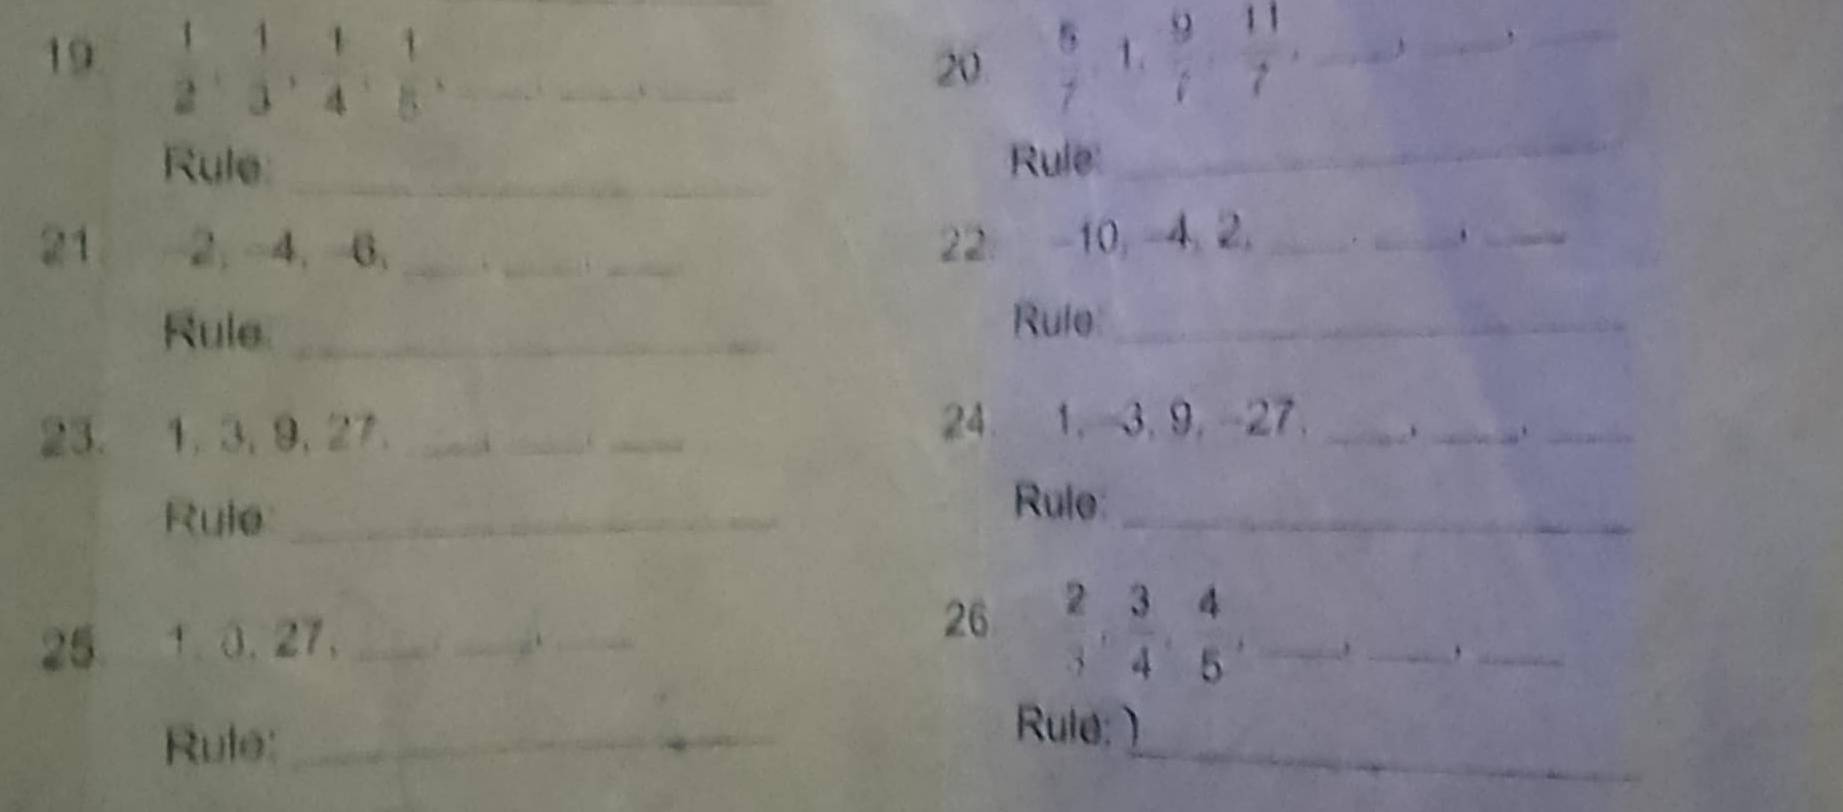 19. 1/2, 1/3, 1/4, 1/5, ____, ____, ____
Rule: ____
20. 5/7, 1, 9/7, 11/7, ____, ____, ____
Rule: ____
21. -2, -4, -6, ____, ____, ____
Rule: ____
22. -10, -4, 2, ____, ____, ____
Rule: ____
23. 1, 3, 9, 27, ____, ____, ____
Rule: ____
24. 1, -3, 9, -27, ____, ____, ____
Rule: ____
25. 1, 27, ____, ____, ____
Rule: ____
26. 2/3, 3/4, 4/5, ____, ____, ____
Rule: ) ____